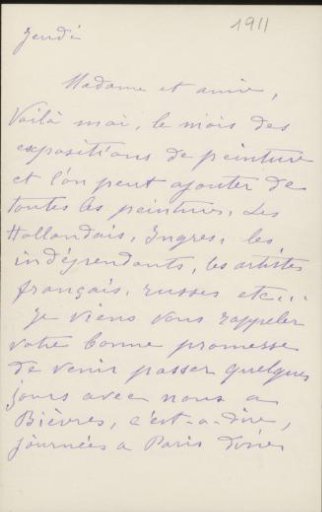 1911
Jeudi
Madame et amie,
Voilà mai, le mois des
expositions de peinture
et l'on peut ajouter de
toutes les peintures. Les
Hollandais, Ingres, les
indépendants, les artistes
français, russes etc...
Je viens vous rappeler
votre bonne promesse
de venir passer quelques
jours avec nous a
Bièvres, c'est-a-dire,
journées a Paris dîner